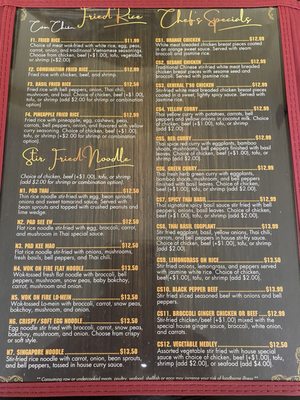 Fried Rice
Com Chien
F1. FRIED RICE $11.99
Choice of meat wok-fried with white rice, egg, peas,
carrot, onion, and traditional Vietnamese seasonings.
Choose from chicken, beef (+$1.00), tofu, vegetable
or shrimp (+$2.00).
F2. COMBINATION FRIED RICE
Fried rice with chicken, beef, and shrimp.
F3. BASIL FRIED RICE $12.50
Fried rice with bell peppers, onion, Thai chili,
mushroom, and basil. Choice of chicken, beef (+$1.00),
tofu, or shrimp (add $2.00 for shrimp or combination
option)
F4. PINEAPPLE FRIED RICE
Fried rice with pineapple, egg, cashews, peas,
carrots, bell peppers, onion, and
curry seasoning. Choice of chicken, beef (+$1.00),
tofu, or shrimp (+$2.00 for shrimp or combination
option).
Stir Fried Noodle
Choice of chicken, beef (+$1.00), tofu, or shrimp
(add $2.00 for shrimp or combination option)
N1. PAD THAI $12.50
Thin rice noodle stir-fried with egg, bean sprout,
onions and sweet tamarind sauce. Served with
bean sprout and topped with crushed peanuts and
lime wedge.
N2. PAD SEE EW $12.50
Flat rice noodle stir-fried with egg, broccoli, carrot,
and mushroom in Thai special sauce.
N3. PAD KEE MAO $12.50
Flat rice noodle stir-fried with onions, mushrooms,
fresh basils, bell peppers, and Thai chili.
N4. WOK ON FIRE FLAT NOODLE $13.50
Wok-tossed fresh flat noodle with broccoli, bell
peppers, mushroom, snow peas, baby bokchoy,
carrot, mushroom and onion.
N5. WOK ON FIRE LO-MEIN $13.50
Wok-tossed lo-mein with broccoli, carrot, snow peas,
bokchoy, mushroom, and onion.
N6. CRISPY / SOFT EGG NOODLE $13.50
Egg noodle stir fried with broccoli, carrot, snow peas,
bokchoy, mushroom, and onion. Choose from crispy
or soft egg noodles.
N7. SINGAPORE NOODLE $13.50
Stir-fried noodle with carrot, onion, bean sprouts,
and bell peppers, tossed in house curry sauce.
Chef's Specials
CS1. ORANGE CHICKEN $12.99
White meat breaded chicken bread pieces coated
in an orange sweet sauce. Served with steam
broccoli and jasmine rice.
CS2. SESAME CHICKEN $12.99
Traditional Chinese stir-fried white meat breaded
chicken bread pieces with sesame seed and
broccoli. Served with jasmine rice.
CS3. GENERAL TSO CHICKEN $12.99
White meat breaded chicken bread pieces
coated in a sweet, lightly spicy sauce. Served with
jasmine rice.
CS4. YELLOW CURRY $12.99
Thai yellow curry with potatoes, carrots, bell
peppers and onions in a coconut milk. Choice of
chicken, beef (+$1.00), tofu or shrimp (add
$2.00).
CS5. RED CURRY $12.99
Thai spice red curry with eggplants, bamboo
shoots, mushrooms, bell peppers finished with basil
leaves. Choice of chicken, beef (+$1.00), tofu, or
shrimp (add $2.00).
CS6. GREEN CURRY $12.99
Thai fresh herb green curry with eggplants,
bamboo shoots, mushrooms, and bell peppers
finished with basil leaves. Choice of chicken,
beef (+$1.00), tofu, or shrimp (add $2.00).
CS7. SPICY THAI BASIL $12.99
Stir fried spicy basil sauce stir fried with bell
peppers, onions, basil leaves. Choice of chicken,
beef (+$1.00), tofu, or shrimp (add $2.00).
CS8. THAI BASIL EGGPLANT $13.99
Stir fried eggplant, basil, yellow onions, Thai chili,
carrots, and bell peppers in house special sauce.
Choice of chicken, beef (+$1.00), tofu, or shrimp
(add $2.00).
CS9. LEMONGRASS ON RICE $13.50
Stir fried onions, lemongrass, and peppers served
with jasmine white rice. Choice of chicken,
beef (+$1.00), tofu, or shrimp (add $2.00).
CS10. BLACK PEPPER BEEF $13.99
Stir fried sliced seasoned beef with onions and bell
peppers.
CS11. BROCCOLI GINGER CHICKEN OR BEEF $12.99
Stir-fried chicken/beef (+$1.00) mixed with the
special house ginger sauce, broccoli, white onion,
and carrots.
CS12. VEGETABLE MEDLEY $12.50
Assorted vegetable stir fried with house special
sauce with choice of chicken, beef (+$1.00), tofu,
shrimp (add $2.00), or seafood (add $4.00).
** Consuming raw or undercooked meats, poultry, seafood, shellfish or eggs may increase your risk of foodborne illness **